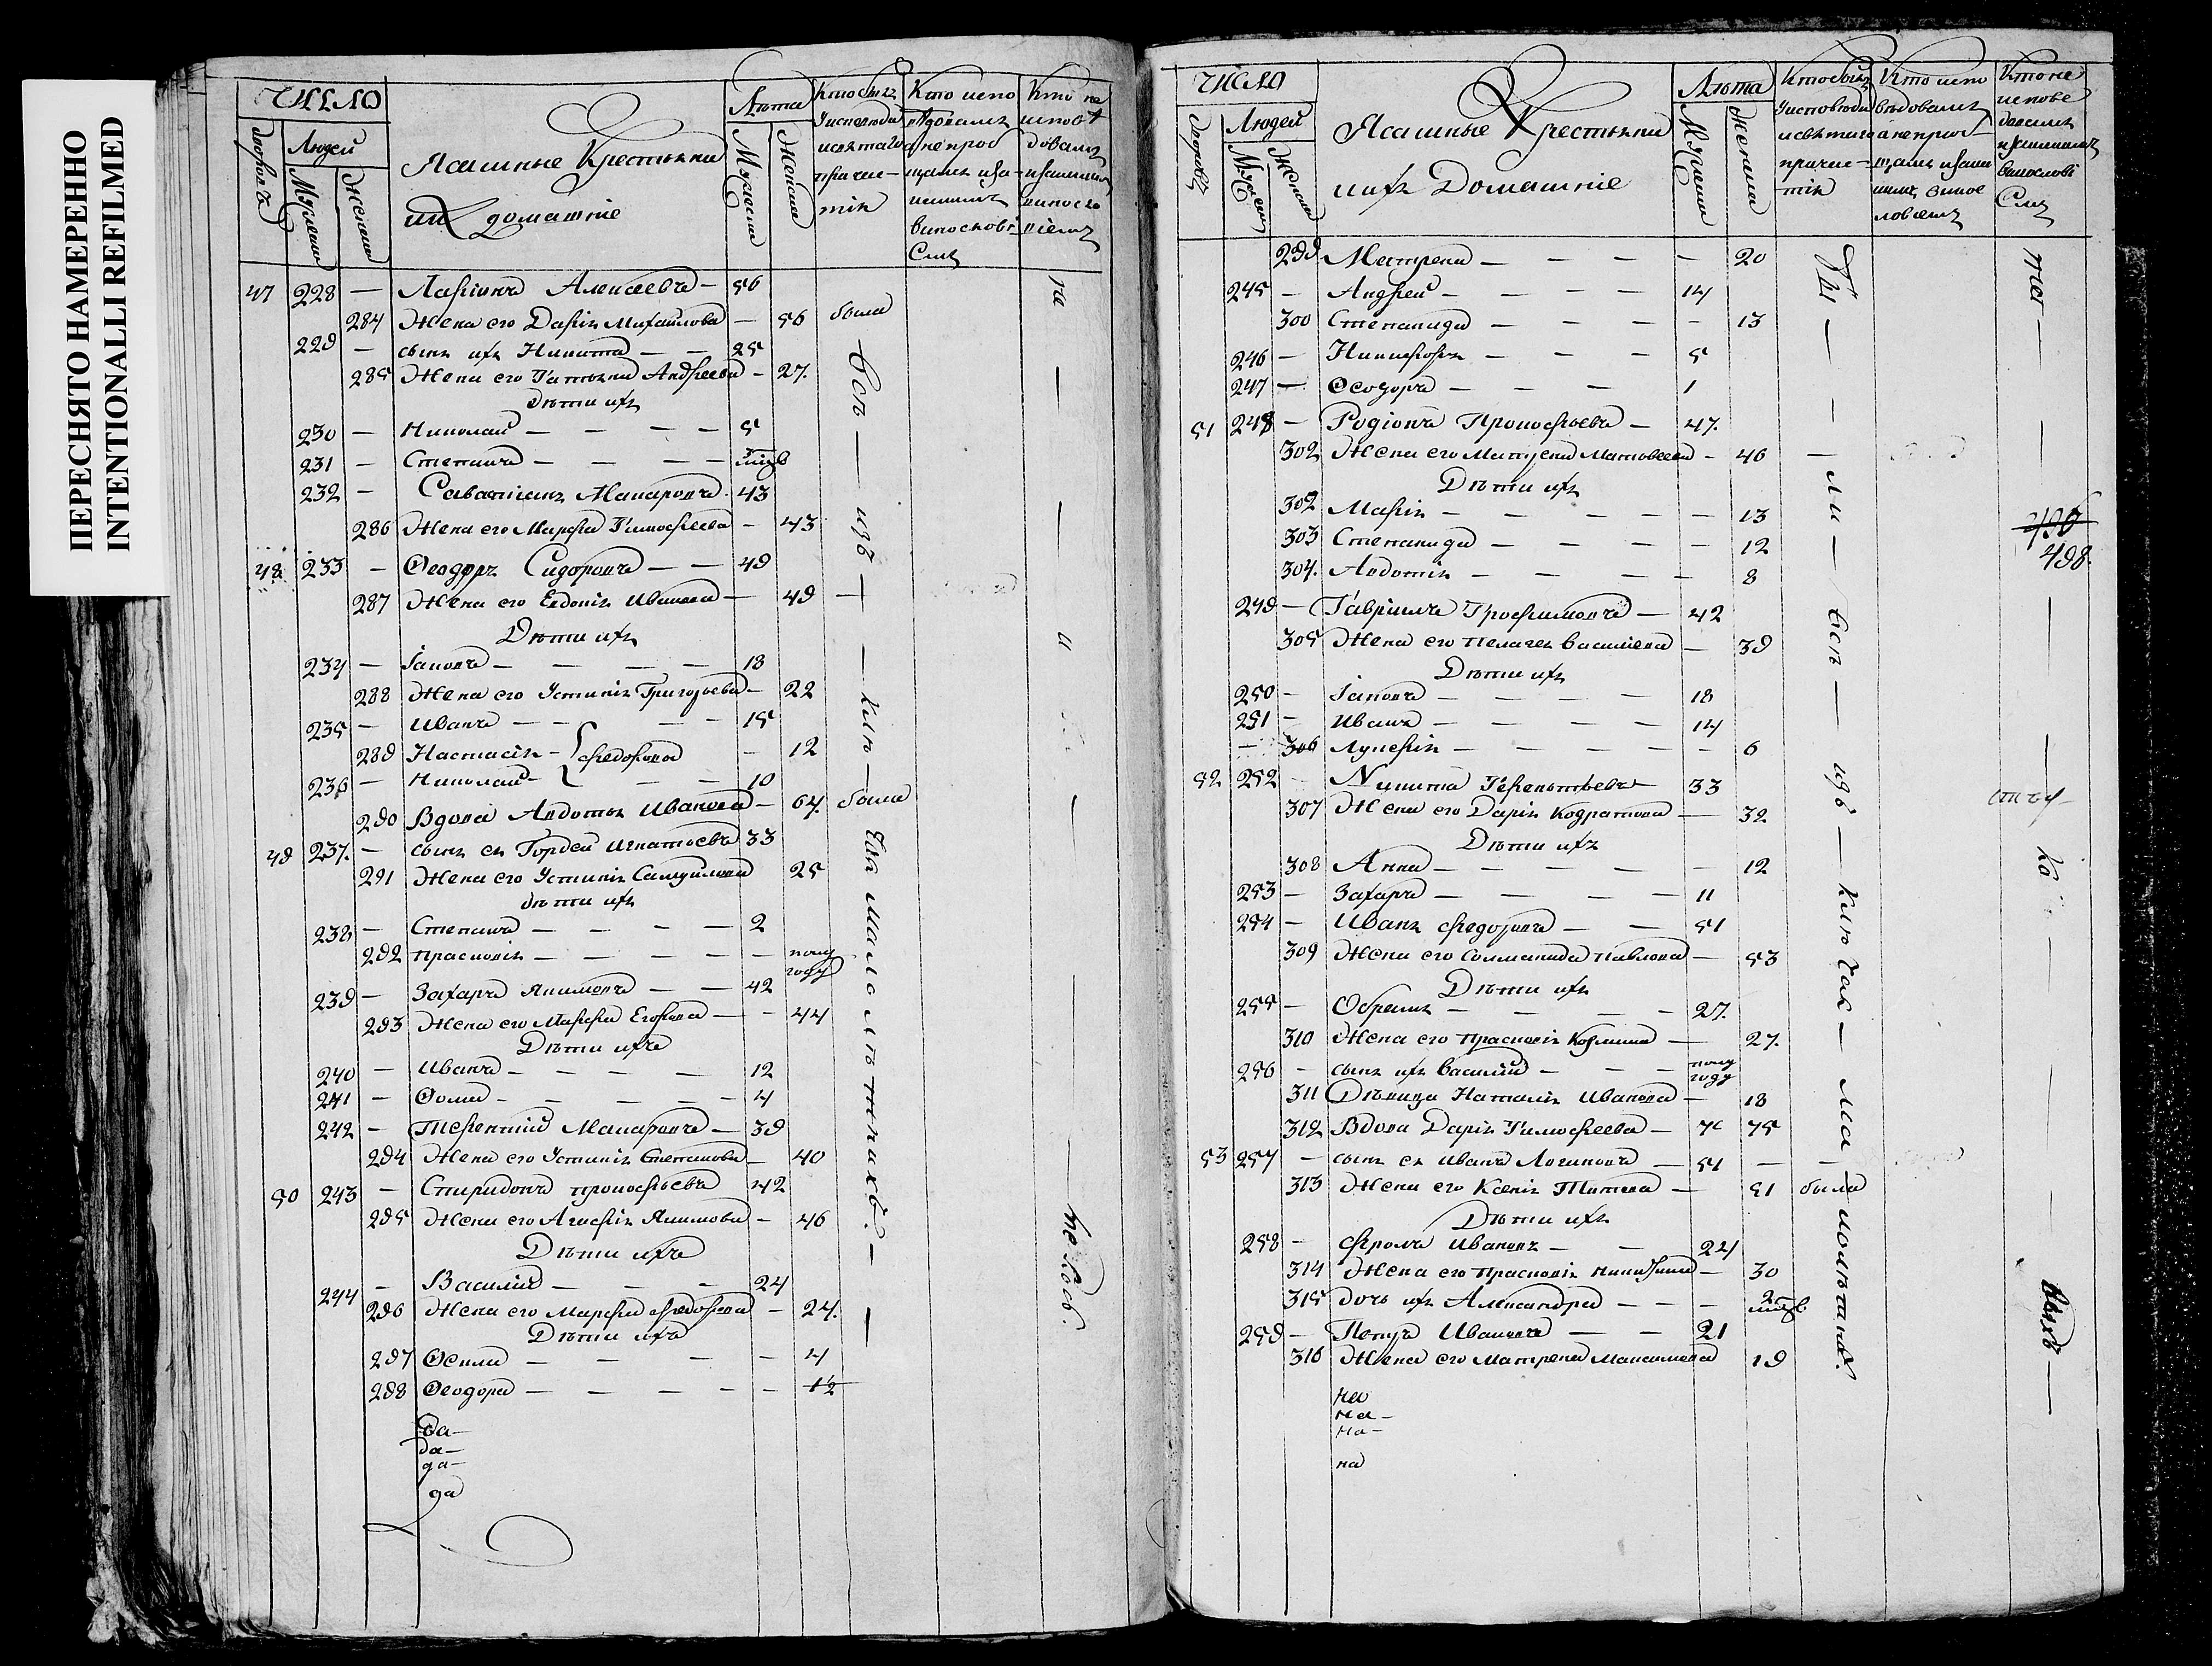 ПЕРЕСНЯТО НАМЕРЕННО
INTENTIONALLI REFILMED
ЧИСЛО
Людей
дворовъ
Мужеска
Женска
Ясашные Крестьяне
ихъ домашніе
Лѣта
Мужеска
Женска
Кто былъ
Уисповѣди
исвятаго
причас-
тія
Кто испо
вѣдовалъ
Кто не
испов
довалъ
47 228 — Ларіонъ Алексеевъ — 56
284 Жена его Дарья Михайлова — 56 была
229 — сынъ ихъ Никита — — 25
285 Жена его Татьяна Андреева — 27.
дѣти ихъ
230 — Николай — — — — 5
231 — Степанъ — — — —
232 — Саватіанъ Макаровъ 43
286 Жена его Марфа Тимофеева — 43
48 233 — Ѳеодоръ Сидоровъ — — 49
287 Жена его Евдокія Иванова — 49
Дѣти ихъ
234 — Іаковъ — — — — 18
288 Жена его Устинія Григорьева — 22
235 — Иванъ — — — — 15
289 Настасія — Федорова — 12
236 — Николай — — — 10
290 Вдова Авдотья Иванова — 64. была
49 237. — сынъ ея Гордей Игнатьевъ 33
291 Жена его Устинія Самуилова 25
дѣти ихъ
238 — Степанъ — — — — 2
292 Прасковія — — — — — — полу
году
239 — Захаръ Якимовъ — — 42
293 Жена его Марфа Егорова — — 44
Дѣти ихъ
240 — Иванъ — — — — 12
241 — Ѳома — — — — — 4
242 — Терентій Макаровъ — 39
294 Жена его Устинія Степанова — 40
50 243 — Спиридонъ Прокофьевъ 42
295 Жена его Агафія Якимова — 46
Дѣти ихъ
244 — Василій — — — 24
296 Жена его Марфа Федорова — 24.
Дѣти ихъ
297 Ѳекла — — — — 4
298 Ѳеодора — — — — — 1/2
да —
да —
да —
да
всѣ — изъ — — клю — чая малолѣтнихъ. —
ЧИСЛО
Людей
дворовъ
Мужеска
Женска
Ясашные Крестьяне
ихъ Домашніе
Лѣта
Мужеска
Женска
Кто былъ
Уисповѣди
исвятаго
причас-
тія
Кто испо
вѣдовалъ
Кто не
испове
довалъ
299 Матрена — — — — 20
245 — Андрей — — — — 14
300 Степанида — — — — 13
246 — Никифоръ — — — 5
247 — Ѳеодоръ — — — 1
51 248 — Родіонъ Прокофьевъ — 47.
302 Жена его Матрена Матвеева — 46
Дѣти ихъ
302 Марія — — — — — 13
303 Степанида — — — — 12
304. Авдотія — — — — 8
498.
249 — Гавриилъ Трофимовъ — 42
305 Жена его Пелагея Васильева — 39
Дѣти ихъ
250 — Іаковъ — — — — 18
251 — Иванъ — — — — 14
— 306 Лукерія — — — — — 6
52 252 — Никита Терентьевъ 33
307 Жена его Дарія Кодратова — 32
Дѣти ихъ
308 Анна — — — — — 12
253 — Захаръ — — — — 11
254 — Иванъ Федоровъ — — 51
309 Жена его Соломанида Павлова — 53
Дѣти ихъ
255 — — — — — 27.
310 Жена его Прасковія Козмина — 27.
256 — сынъ ихъ Василій — — — полу
году
311 Дѣвица Наталія Иванова — 18
312 Вдова Дарія Тимофеева — 75
53 257 — сынъ ея Иванъ Логиновъ — 51 — —
313 Жена его Ксенія Титова — 51 была
Дѣти ихъ
258 — Фролъ Ивановъ — — 24
314 Жена его Прасковія Никифорова — 30
315 дочь ихъ Александра — — — 2
259 — Петръ Ивановъ — — 21
316 Жена его Матрена Максимова 19
на
на —
на —
на
— — ли — всѣ — изъ — клю чая — ма — лолѣтнихъ.